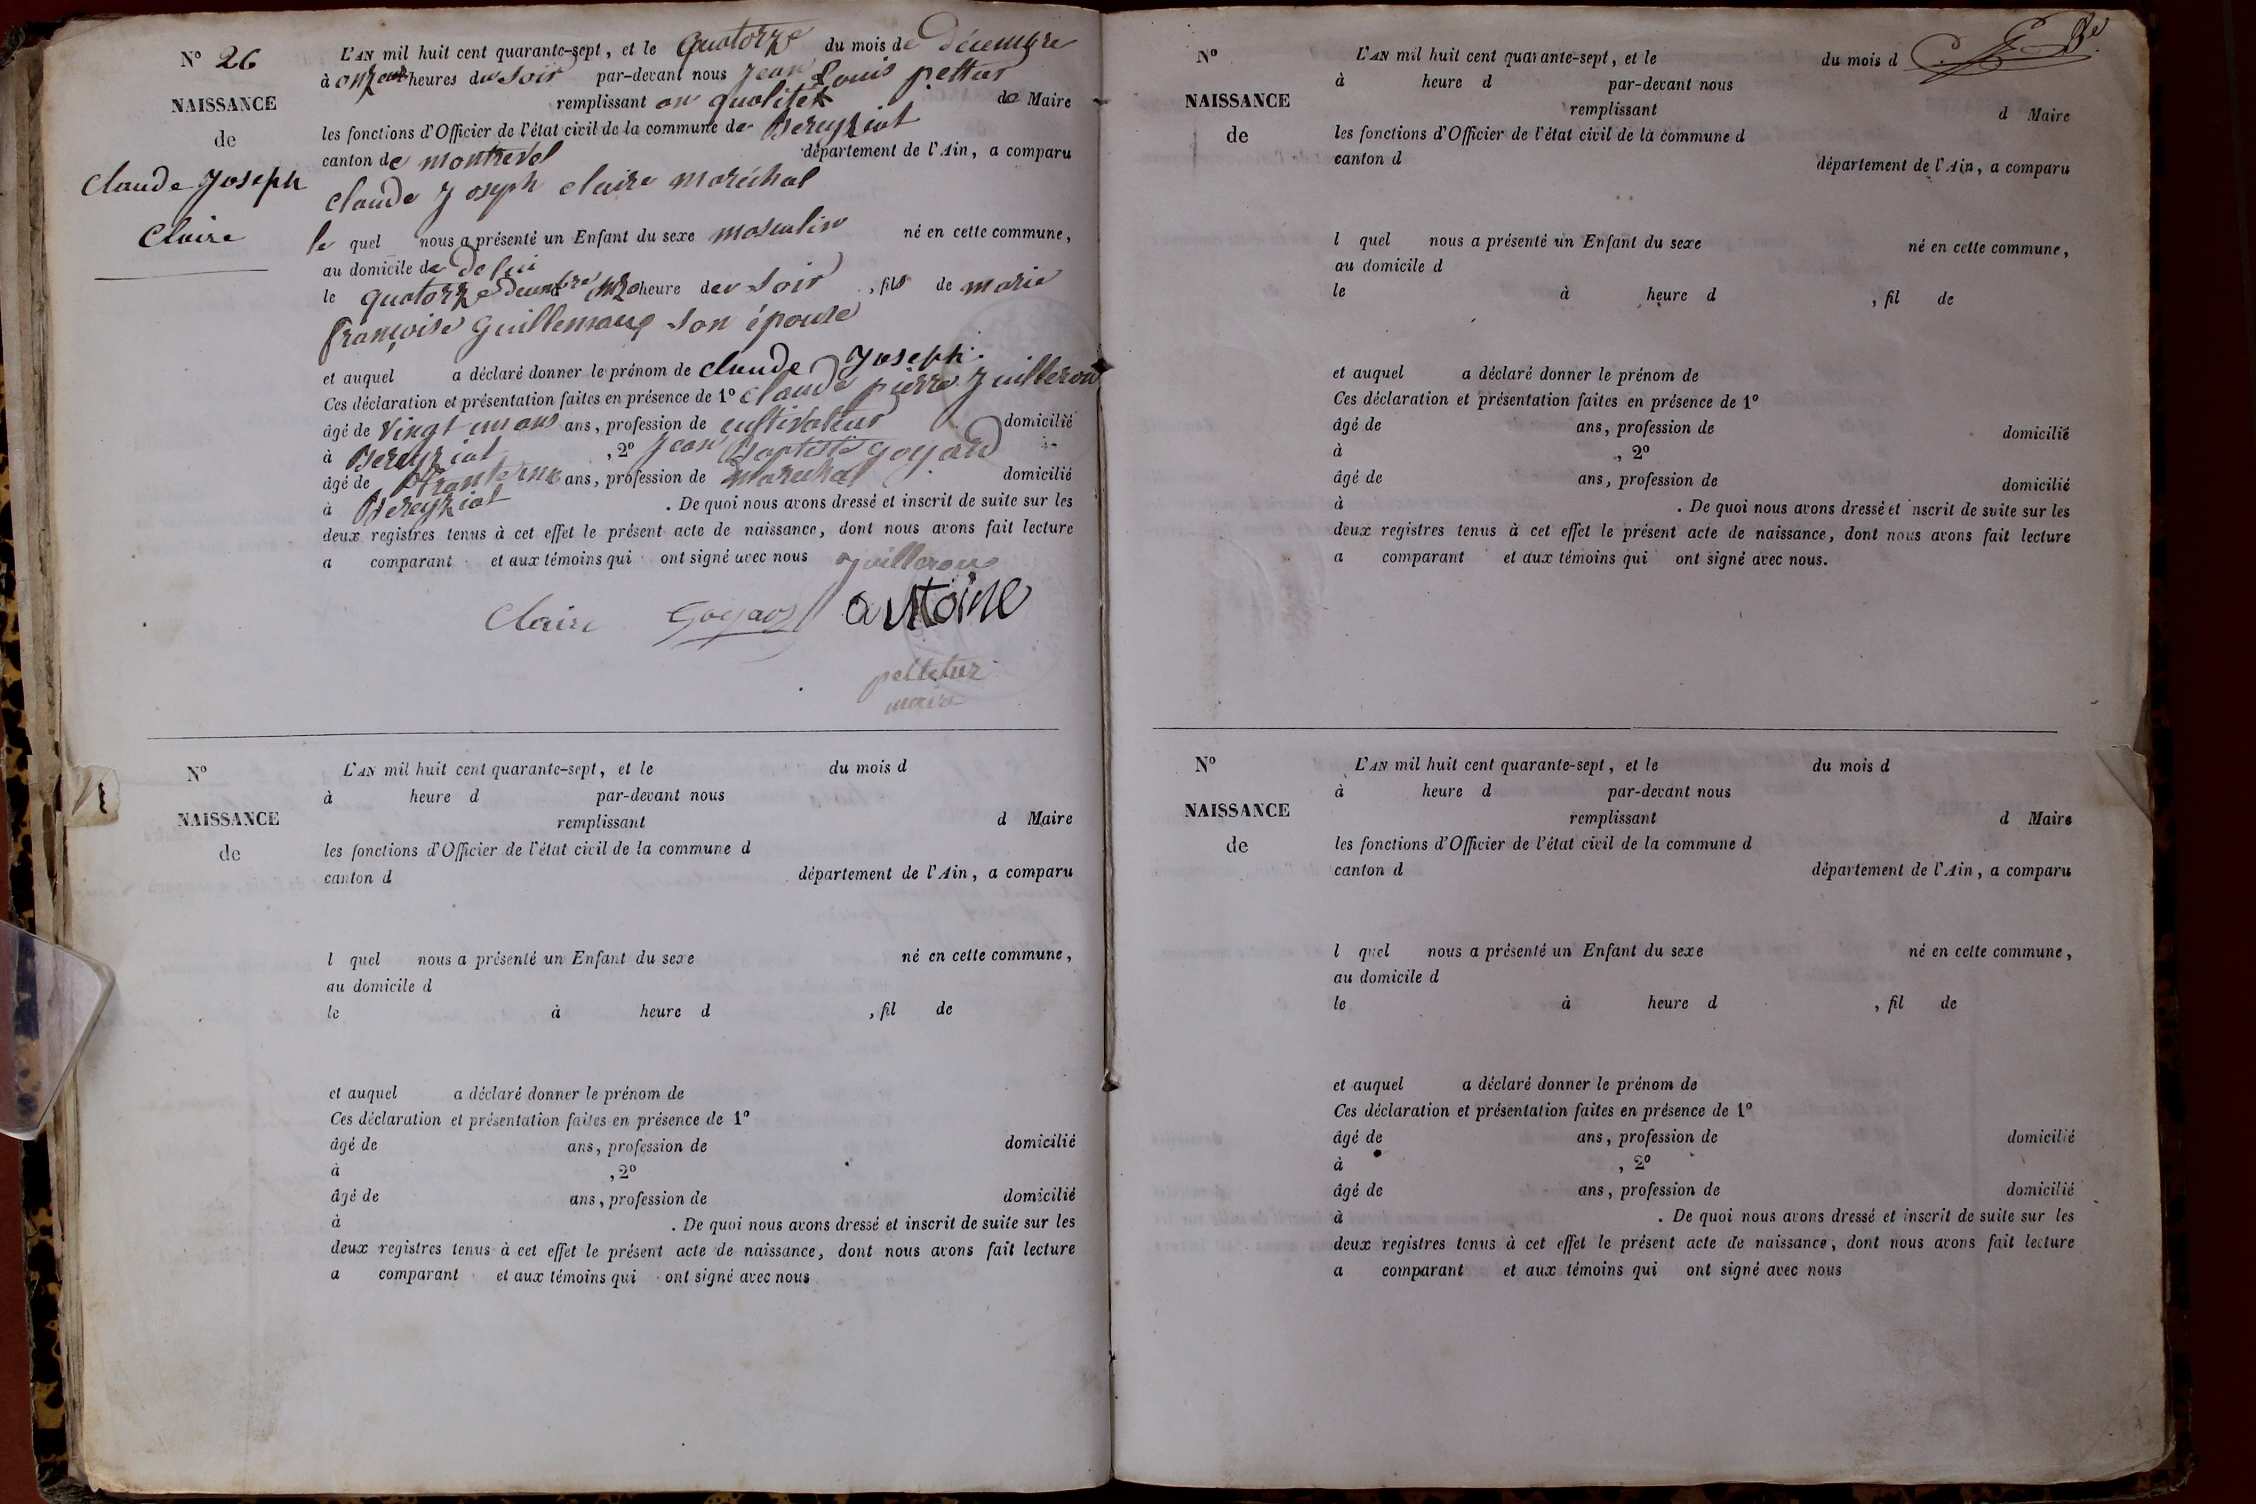 N° 26
NAISSANCE
de
Claude Joseph
Claire
L'AN mil huit cent quarante-sept, et le quatorze du mois de décembre
à onze heures du soir par-devant nous Jean Louis
remplissant en qualité de Maire
les fonctions d'Officier de l'état civil de la commune de Bereyziat
canton de montrevel département de l'Ain, a comparu
claude Joseph claire maréchal
le quel nous a présenté un Enfant du sexe masculin né en cette commune,
au domicile de de lui
le quatorze heure du soir , fils de marie
françoise son épouse
et auquel a déclaré donner le prénom de claude Joseph.
Ces déclaration et présentation faites en présence de 1° claude pierre Juilleron
âgé de vingt un ans ans, profession de cultivateur domicilié
à Bereyziat , 2° Jean Baptiste goyard
âgé de ans, profession de marechal domicilié
à Bereyziat . De quoi nous avons dressé et inscrit de suite sur les
deux registres tenus à cet effet le présent acte de naissance, dont nous avons fait lecture
a comparant et aux témoins qui ont signé avec nous Juilleron
Claire Goyard antoine
maire
N°
NAISSANCE
de
L'AN mil huit cent quarante-sept, et le du mois d
à heure d par-devant nous
remplissant d Maire
les fonctions d'Officier de l'état civil de la commune d
canton d département de l'Ain, a comparu
l quel nous a présenté un Enfant du sexe né en cette commune,
au domicile d
le à heure d , fil de
et auquel a déclaré donner le prénom de
Ces déclaration et présentation faites en présence de 1°
âgé de ans, profession de domicilié
à , 2°
âgé de ans, profession de domicilié
à . De quoi nous avons dressé et inscrit de suite sur les
deux registres tenus à cet effet le présent acte de naissance, dont nous avons fait lecture
a comparant et aux témoins qui ont signé avec nous
N°
NAISSANCE
de
L'AN mil huit cent quarante-sept, et le du mois d
à heure d par-devant nous
remplissant d Maire
les fonctions d'Officier de l'état civil de la commune d
canton d département de l'Ain, a comparu
l quel nous a présenté un Enfant du sexe né en cette commune,
au domicile d
le à heure d , fil de
et auquel a déclaré donner le prénom de
Ces déclaration et présentation faites en présence de 1°
âgé de ans, profession de domicilié
à , 2°
âgé de ans, profession de domicilié
à . De quoi nous avons dressé et inscrit de suite sur les
deux registres tenus à cet effet le présent acte de naissance, dont nous avons fait lecture
a comparant et aux témoins qui ont signé avec nous.
N°
NAISSANCE
de
L'AN mil huit cent quarante-sept, et le du mois d
à heure d par-devant nous
remplissant d Maire
les fonctions d'Officier de l'état civil de la commune d
canton d département de l'Ain, a comparu
l quel nous a présenté un Enfant du sexe né en cette commune,
au domicile d
le à heure d , fil de
et auquel a déclaré donner le prénom de
Ces déclaration et présentation faites en présence de 1°
âgé de ans, profession de domicilié
à , 2°
âgé de ans, profession de domicilié
à . De quoi nous avons dressé et inscrit de suite sur les
deux registres tenus à cet effet le présent acte de naissance, dont nous avons fait lecture
a comparant et aux témoins qui ont signé avec nous